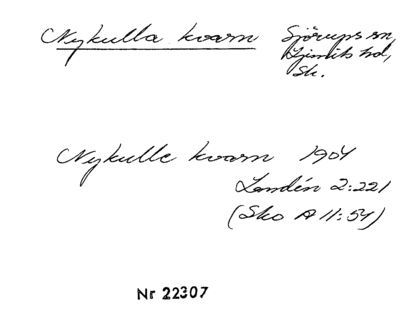 Nykulla kvarn Sjörups sn,
Ljunits hd,
Sk.
Nykulle kvarn 1904
Landén 2:221
(Sko A 11:54)
Nr 22307